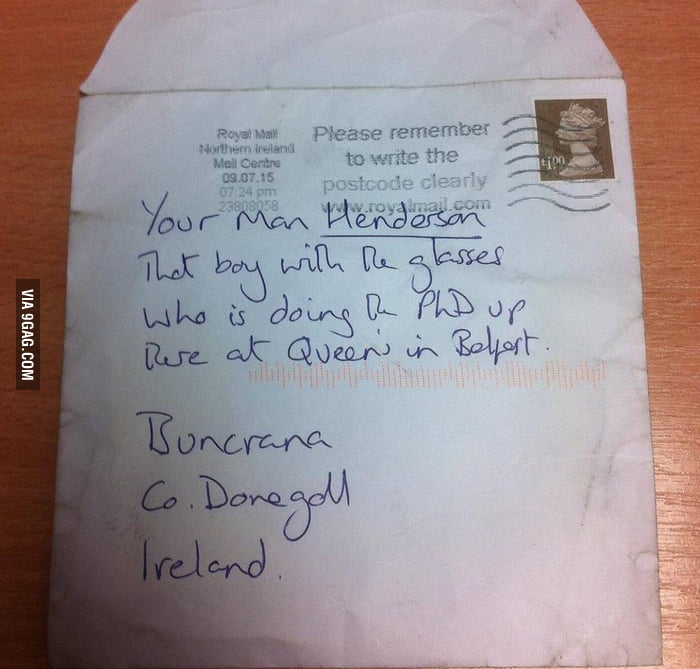 Royal Mail
Northern Ireland
Mail Centre
03.07.15
07:24 pm
23808058
Please remember
to write the
postcode clearly
www.royalmail.com
£1.00
Your Man Henderson
That boy with the glasses
who is doing the PhD up
there at Queen's in Belfast.
Buncrana
Co. Donegall
Ireland.
VIA 9GAG.COM